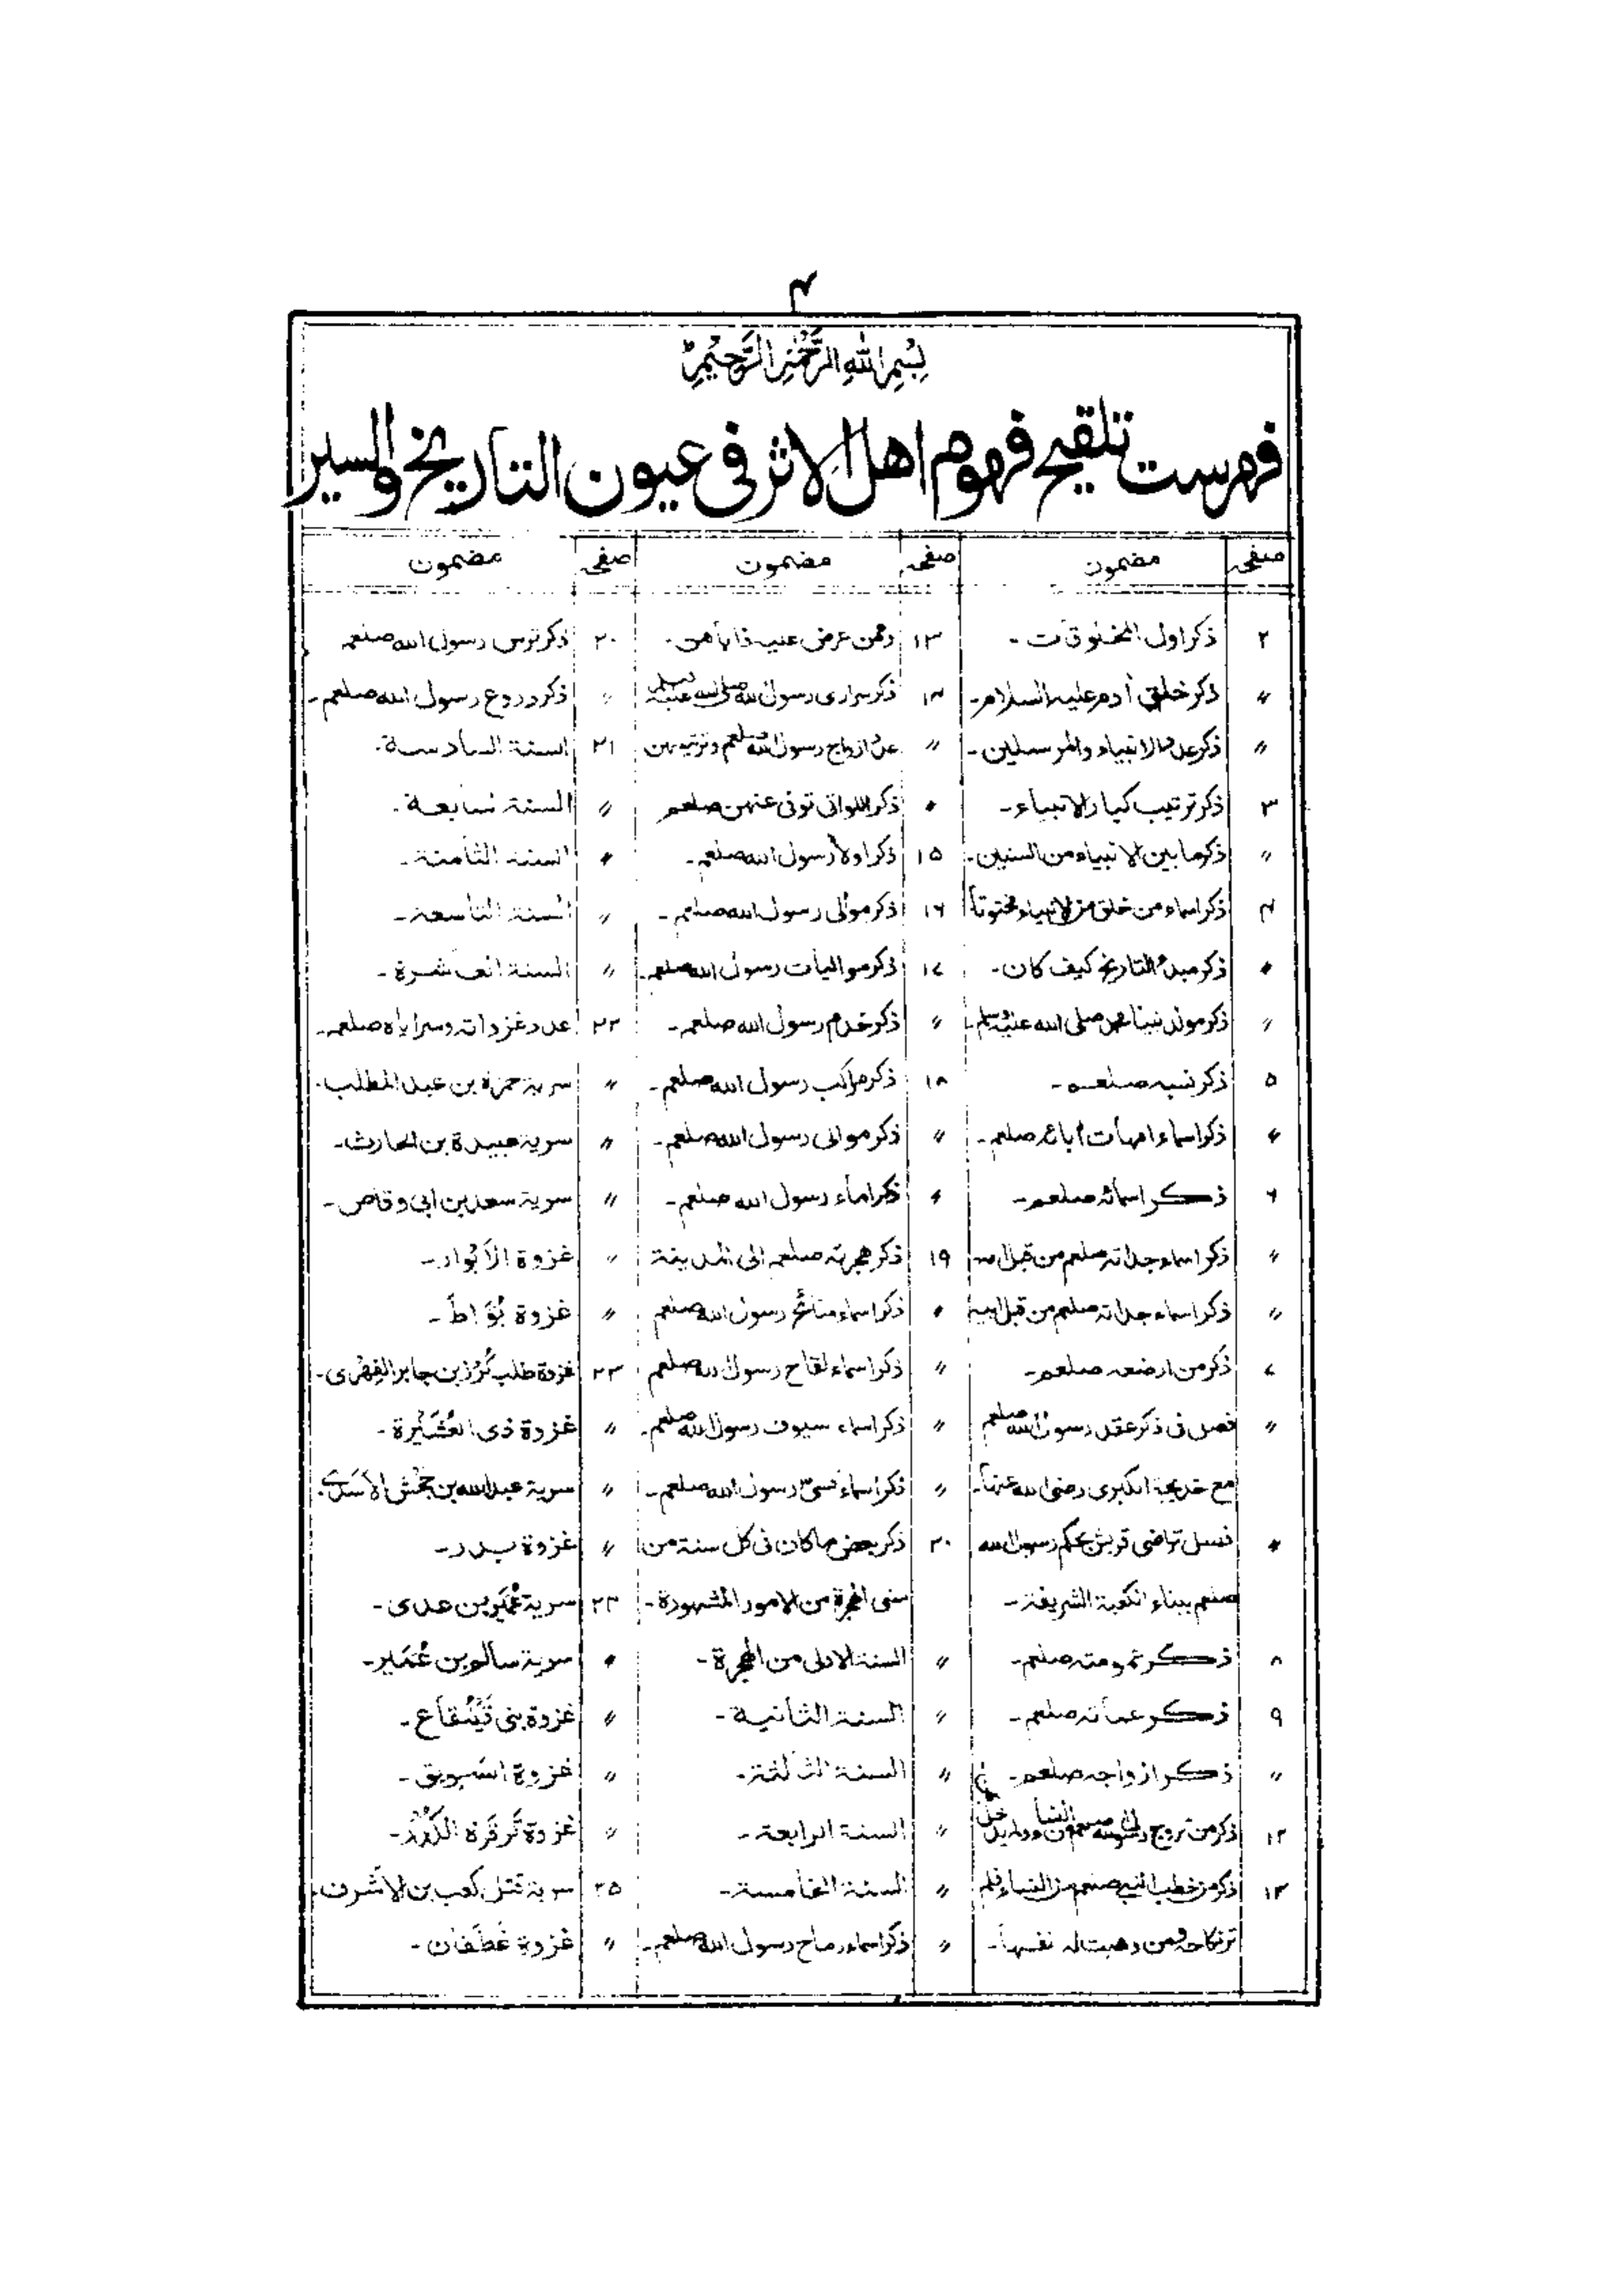 ۴
بِسْمِ اللهِ الرَّحْمٰنِ الرَّحِيْمِ
فهرست تلقيح فهوم اهل الاثر في عيون التاريخ والسير
صفحہ مضمون صفحہ مضمون صفحہ مضمون
۲ ذكر اول المخلوقات - ۱۳ ومن عرض عليه فاباهن - ۲۰ ذكر ترس رسول الله صلعم
〃 ذكر خلق أدم عليه السلام - ۱۴ ذكر سراري رسول الله صلى الله عليه وسلم 〃 ذكر دروع رسول الله صلعم -
〃 ذكر عدد الانبياء والمرسلين - 〃 عدد ازواج رسول الله صلعم وترتيبهن ۲۱ السنة السادسة -
۳ ذكر ترتيب كبار الانبياء - 〃 ذكر اللواتي توفي عنهن صلعم 〃 السنة السابعة -
〃 ذكر ما بين الانبياء من السنين - ۱۵ ذكر اولاد رسول الله صلعم - 〃 السنة الثامنة -
۴ ذكر اسماء من خلق من الانبياء مختوناً ۱۶ ذكر موالى رسول الله صلعم - 〃 السنة التاسعة -
〃 ذكر مبدء التاريخ كيف كان - ۱۷ ذكر مواليات رسول الله صلعم - 〃 السنة العاشرة -
〃 ذكر مولد نبينا محمد صلى الله عليه وسلم - 〃 ذكر خدم رسول الله صلعم - ۲۲ عدد غزواته وسراياه صلعم -
۵ ذكر نسبه صلعم - ۱۸ ذكر مراكب رسول الله صلعم - 〃 سرية حمزة بن عبد المطلب -
〃 ذكر اسماء امهات أبائه صلعم - 〃 ذكر موالى رسول الله صلعم - 〃 سرية عبيدة بن الحارث -
۶ ذكر اسمائه صلعم - 〃 ذكر اماء رسول الله صلعم - 〃 سرية سعد بن ابي وقاص -
〃 ذكر اسماء جداته صلعم من قبل امه ۱۹ ذكر هجرته صلعم الى المدينة 〃 غزوة الأبواء -
〃 ذكر اسماء جداته صلعم من قبل ابيه 〃 ذكر اسماء منائح رسول الله صلعم 〃 غزوة بُوَاط -
۷ ذكر من ارضعه صلعم - 〃 ذكر اسماء لقاح رسول الله صلعم ۲۳ غزوة طلب كُرْز بن جابر الفِهْرى -
〃 فصل في ذكر عقد رسول الله صلعم 〃 ذكر اسماء سيوف رسول الله صلعم - 〃 غزوة ذى العُشَيْرة -
مع خديجة الكبرى رضى الله عنها - 〃 ذكر اسماء قسىّ رسول الله صلعم - 〃 سرية عبد الله بن جَحْش الأسَدى -
〃 فصل تراضى قريش بحكم رسول الله ۲۰ ذكر بعض ما كان فى كل سنة من 〃 غزوة بدر -
صلعم ببناء الكعبة الشريفة - سنى الهجرة من الامور المشهودة - ۲۴ سرية عُمَير بن عدى -
۸ ذكر عمومته صلعم - 〃 السنة الاولى من الهجرة - 〃 سرية سالم بن عُمَير -
۹ ذكر عماته صلعم - 〃 السنة الثانية - 〃 غزوة بنى قَيْنُقاع -
〃 ذكر ازواجه صلعم - 〃 السنة الثالثة - 〃 غزوة السَّويق -
۱۲ ذكر من تزوج من النساء ولم يدخل 〃 السنة الرابعة - 〃 غزوة قَرقَرة الكُدْر -
۱۳ ذكر من خطب النبي صلعم من النساء فلم 〃 السنة الخامسة - ۲۵ سرية قتل كعب بن الأشرف -
نكاحه ومن وهبت له نفسها - 〃 ذكر اسماء رماح رسول الله صلعم - 〃 غزوة غَطَفَان -